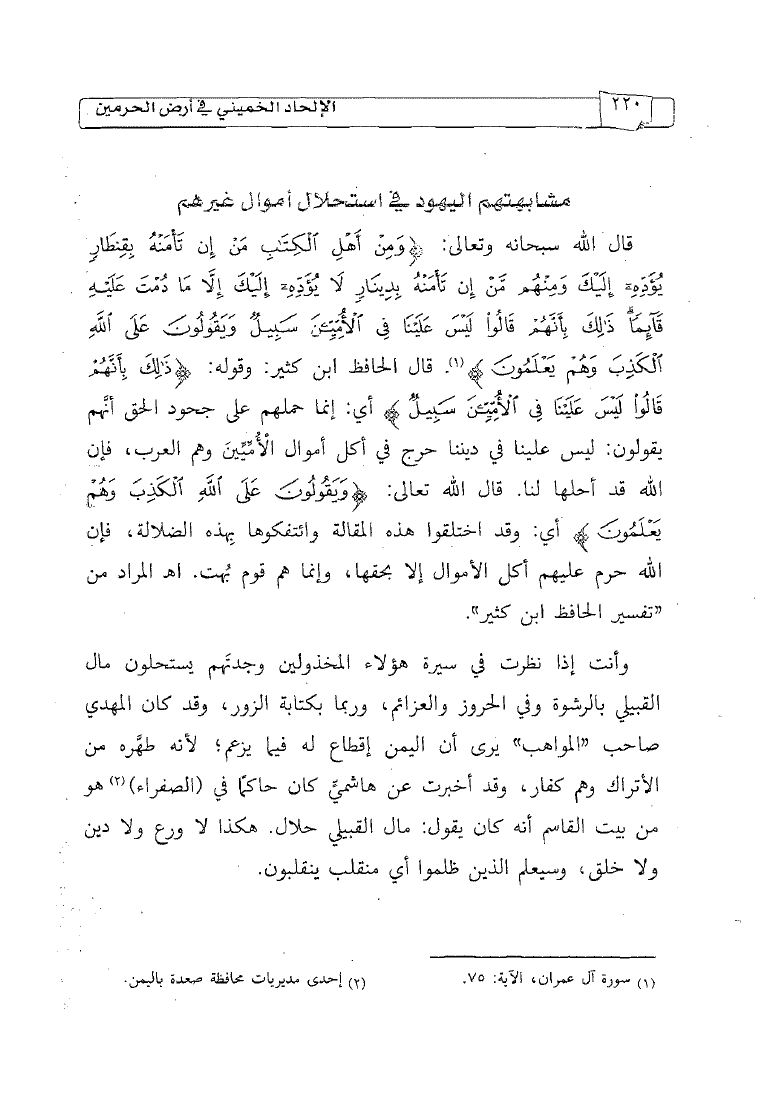 ٢٢٠
الإلحاد الخميني في أرض الحرمين
مشابهتهم اليهود في استحلال أموال غيرهم
قال الله سبحانه وتعالى: ﴿وَمِنْ أَهْلِ ٱلْكِتَٰبِ مَنْ إِن تَأْمَنْهُ بِقِنطَارٍ
يُؤَدِّهِۦٓ إِلَيْكَ وَمِنْهُم مَّنْ إِن تَأْمَنْهُ بِدِينَارٍ لَّا يُؤَدِّهِۦٓ إِلَيْكَ إِلَّا مَا دُمْتَ عَلَيْهِ
قَآئِمًا ۗ ذَٰلِكَ بِأَنَّهُمْ قَالُوا۟ لَيْسَ عَلَيْنَا فِى ٱلْأُمِّيِّـۧنَ سَبِيلٌ وَيَقُولُونَ عَلَى ٱللَّهِ
ٱلْكَذِبَ وَهُمْ يَعْلَمُونَ﴾(١). قال الحافظ ابن كثير: وقوله: ﴿ذَٰلِكَ بِأَنَّهُمْ
قَالُوا۟ لَيْسَ عَلَيْنَا فِى ٱلْأُمِّيِّـۧنَ سَبِيلٌ﴾ أي: إنما حملهم على جحود الحق أنَّهم
يقولون: ليس علينا في ديننا حرج في أكل أموال الْأُمِّيِّينَ وهم العرب، فإن
الله قد أحلها لنا. قال الله تعالى: ﴿وَيَقُولُونَ عَلَى ٱللَّهِ ٱلْكَذِبَ وَهُمْ
يَعْلَمُونَ﴾ أي: وقد اختلقوا هذه المقالة وائتفكوها بِهذه الضلالة، فإن
الله حرم عليهم أكل الأموال إلا بحقها، وإنما هم قوم بُهت. اهـ المراد من
"تفسير الحافظ ابن كثير".
وأنت إذا نظرت في سيرة هؤلاء المخذولين وجدتَهم يستحلون مال
القبيلي بالرشوة وفي الحروز والعزائم، وربما بكتابة الزور، وقد كان المهدي
صاحب "المواهب" يرى أن اليمن إقطاع له فيما يزعم؛ لأنه طهَّره من
الأتراك وهم كفار، وقد أخبرت عن هاشميٍّ كان حاكمًا في (الصفراء)(٢) هو
من بيت القاسم أنه كان يقول: مال القبيلي حلال. هكذا لا ورع ولا دين
ولا خلق، وسيعلم الذين ظلموا أي منقلب ينقلبون.
(١) سورة آل عمران، الآية: ٧٥.
(٢) إحدى مديريات محافظة صعدة باليمن.